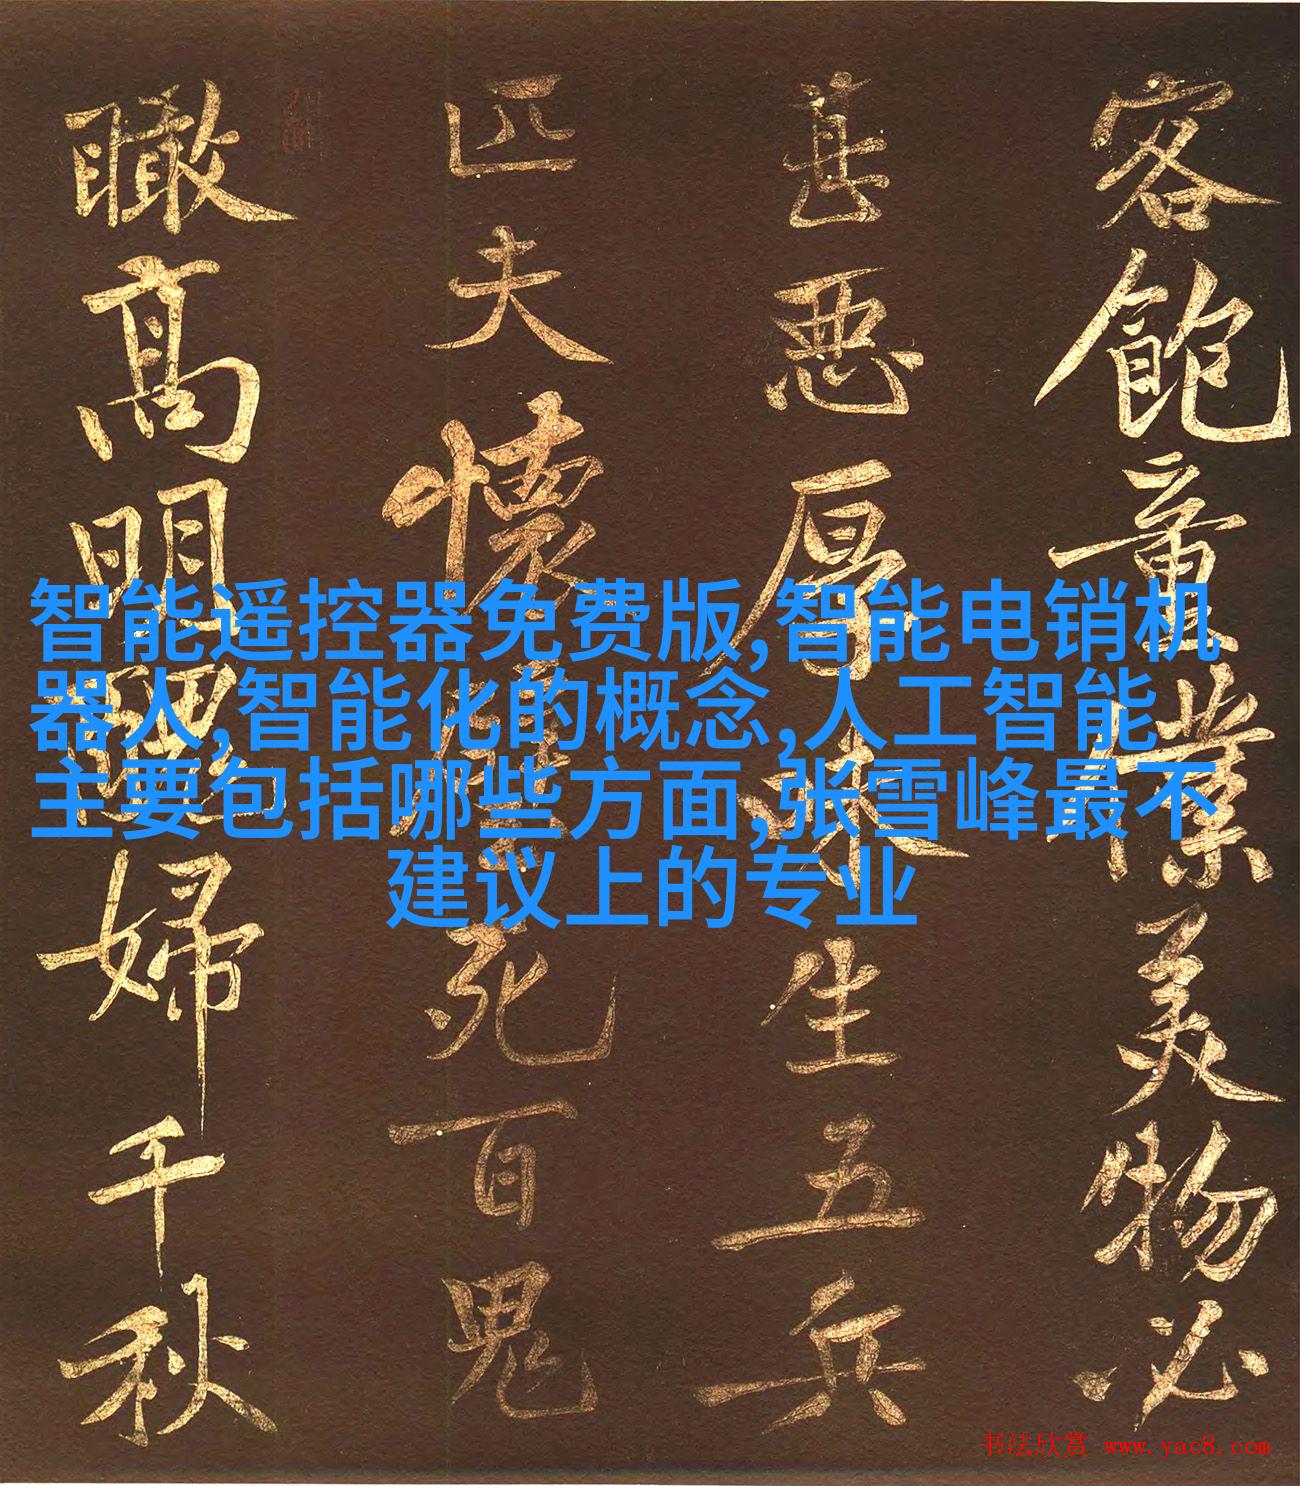 客飽童僕美物必
甚惡厚味生五兵
匹夫懷璧死百鬼
瞰高明醜婦千秋
智能遥控器免费版,智能电销机
器人,智能化的概念,人工智能
主要包括哪些方面,张雪峰最不
建议上的专业
书法欣赏 www.yac8.com